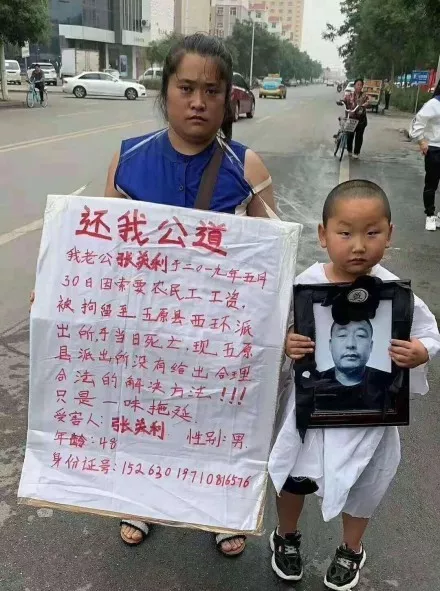 还我公道
我老公张英利于二〇一九年五月
30日因索要农民工工资,
被拘留至五原县西环派
出所于当日死亡,现五原
县派出所没有给出合理
合法的解决方法!!!
只是一味拖延.
受害人:张英利
年龄:48 性别:男.
身份证号:15263019710816576